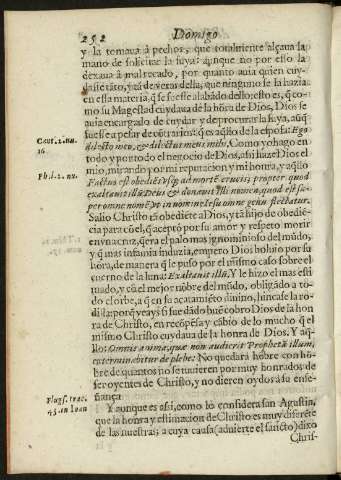 252 Domĩgo
y la tomaua à pechos, que totalmente alçaua la
mano de solicitar la suya: aunque no por esso la
dexaua à mal recado, por quanto auia quien cuy-
dasse della,
en esta materia, q̃ se fuesse alabãdo dello: esto es, q̃ co-
mo su Magestad cuydaua de la hõra de Dios, Dios se
auia encargado de cuydar y de procurar la suya, aũq̃
fuesse a pesar de cõtrarios: q̃ es aq̃llo de la esposa: Ego
Cant. 2. nu. 16
dilecto meo, & dilectus meus mihi. Como yo hago en
todo y por todo el negocio de Dios, assi haze Dios el
mio, mirando por mi reputacion y mi honra, y aq̃llo
Phil. 2. nu.
Factus est obediẽs vsq; ad mortẽ crucis; propter quod
exaltauit illũ Deus & donauit illi nomen, quod est su-
per omne nomẽ, vt in nomine Iesu omne genu flectatur.
Salio Christo tã obediẽte al Dios, y tã hijo de obediẽ-
cia para cõ el, que aceptò por su amor y respeto morir
en vna cruz, q̃ era el palo mas ignominioso del mũdo,
y q̃ mas infamia induzia, empero Dios boluio por su
hõra, de manera q̃ le puso por el mismo caso sobre el
cuerno de la luna: Exaltauit illũ. Y le hizo el mas esti
mado, y cõ el mejor nõbre del mũdo, obligãdo a to-
do el orbe, a q̃ en su acatamiẽto diuino, hincase la ro-
dilla: porq̃ veays si fue dado buẽ cobro Dios de la hon
ra de Christo, en recõpẽsa y cãbio de lo mucho q̃ el
mismo Christo cuydaua de la honra de Dios. Y aq̃-
llo: Omnis anima, quæ non audierit Prophetã illum,
exterminabitur de plebe: No quedarà hõbre con hõ-
bre de quantos no se tuuieren por muy honrados de
ser oyentes de Christo, y no dieren oydos à su ense-
ñança.
Y aunque es assi, como lo considera san Agustin,
45. in Ioan
que la honra y estimacion de Christo es muy diferẽte
de las nuestras; a cuya causa (aduierte el sancto) dixo
Chris-